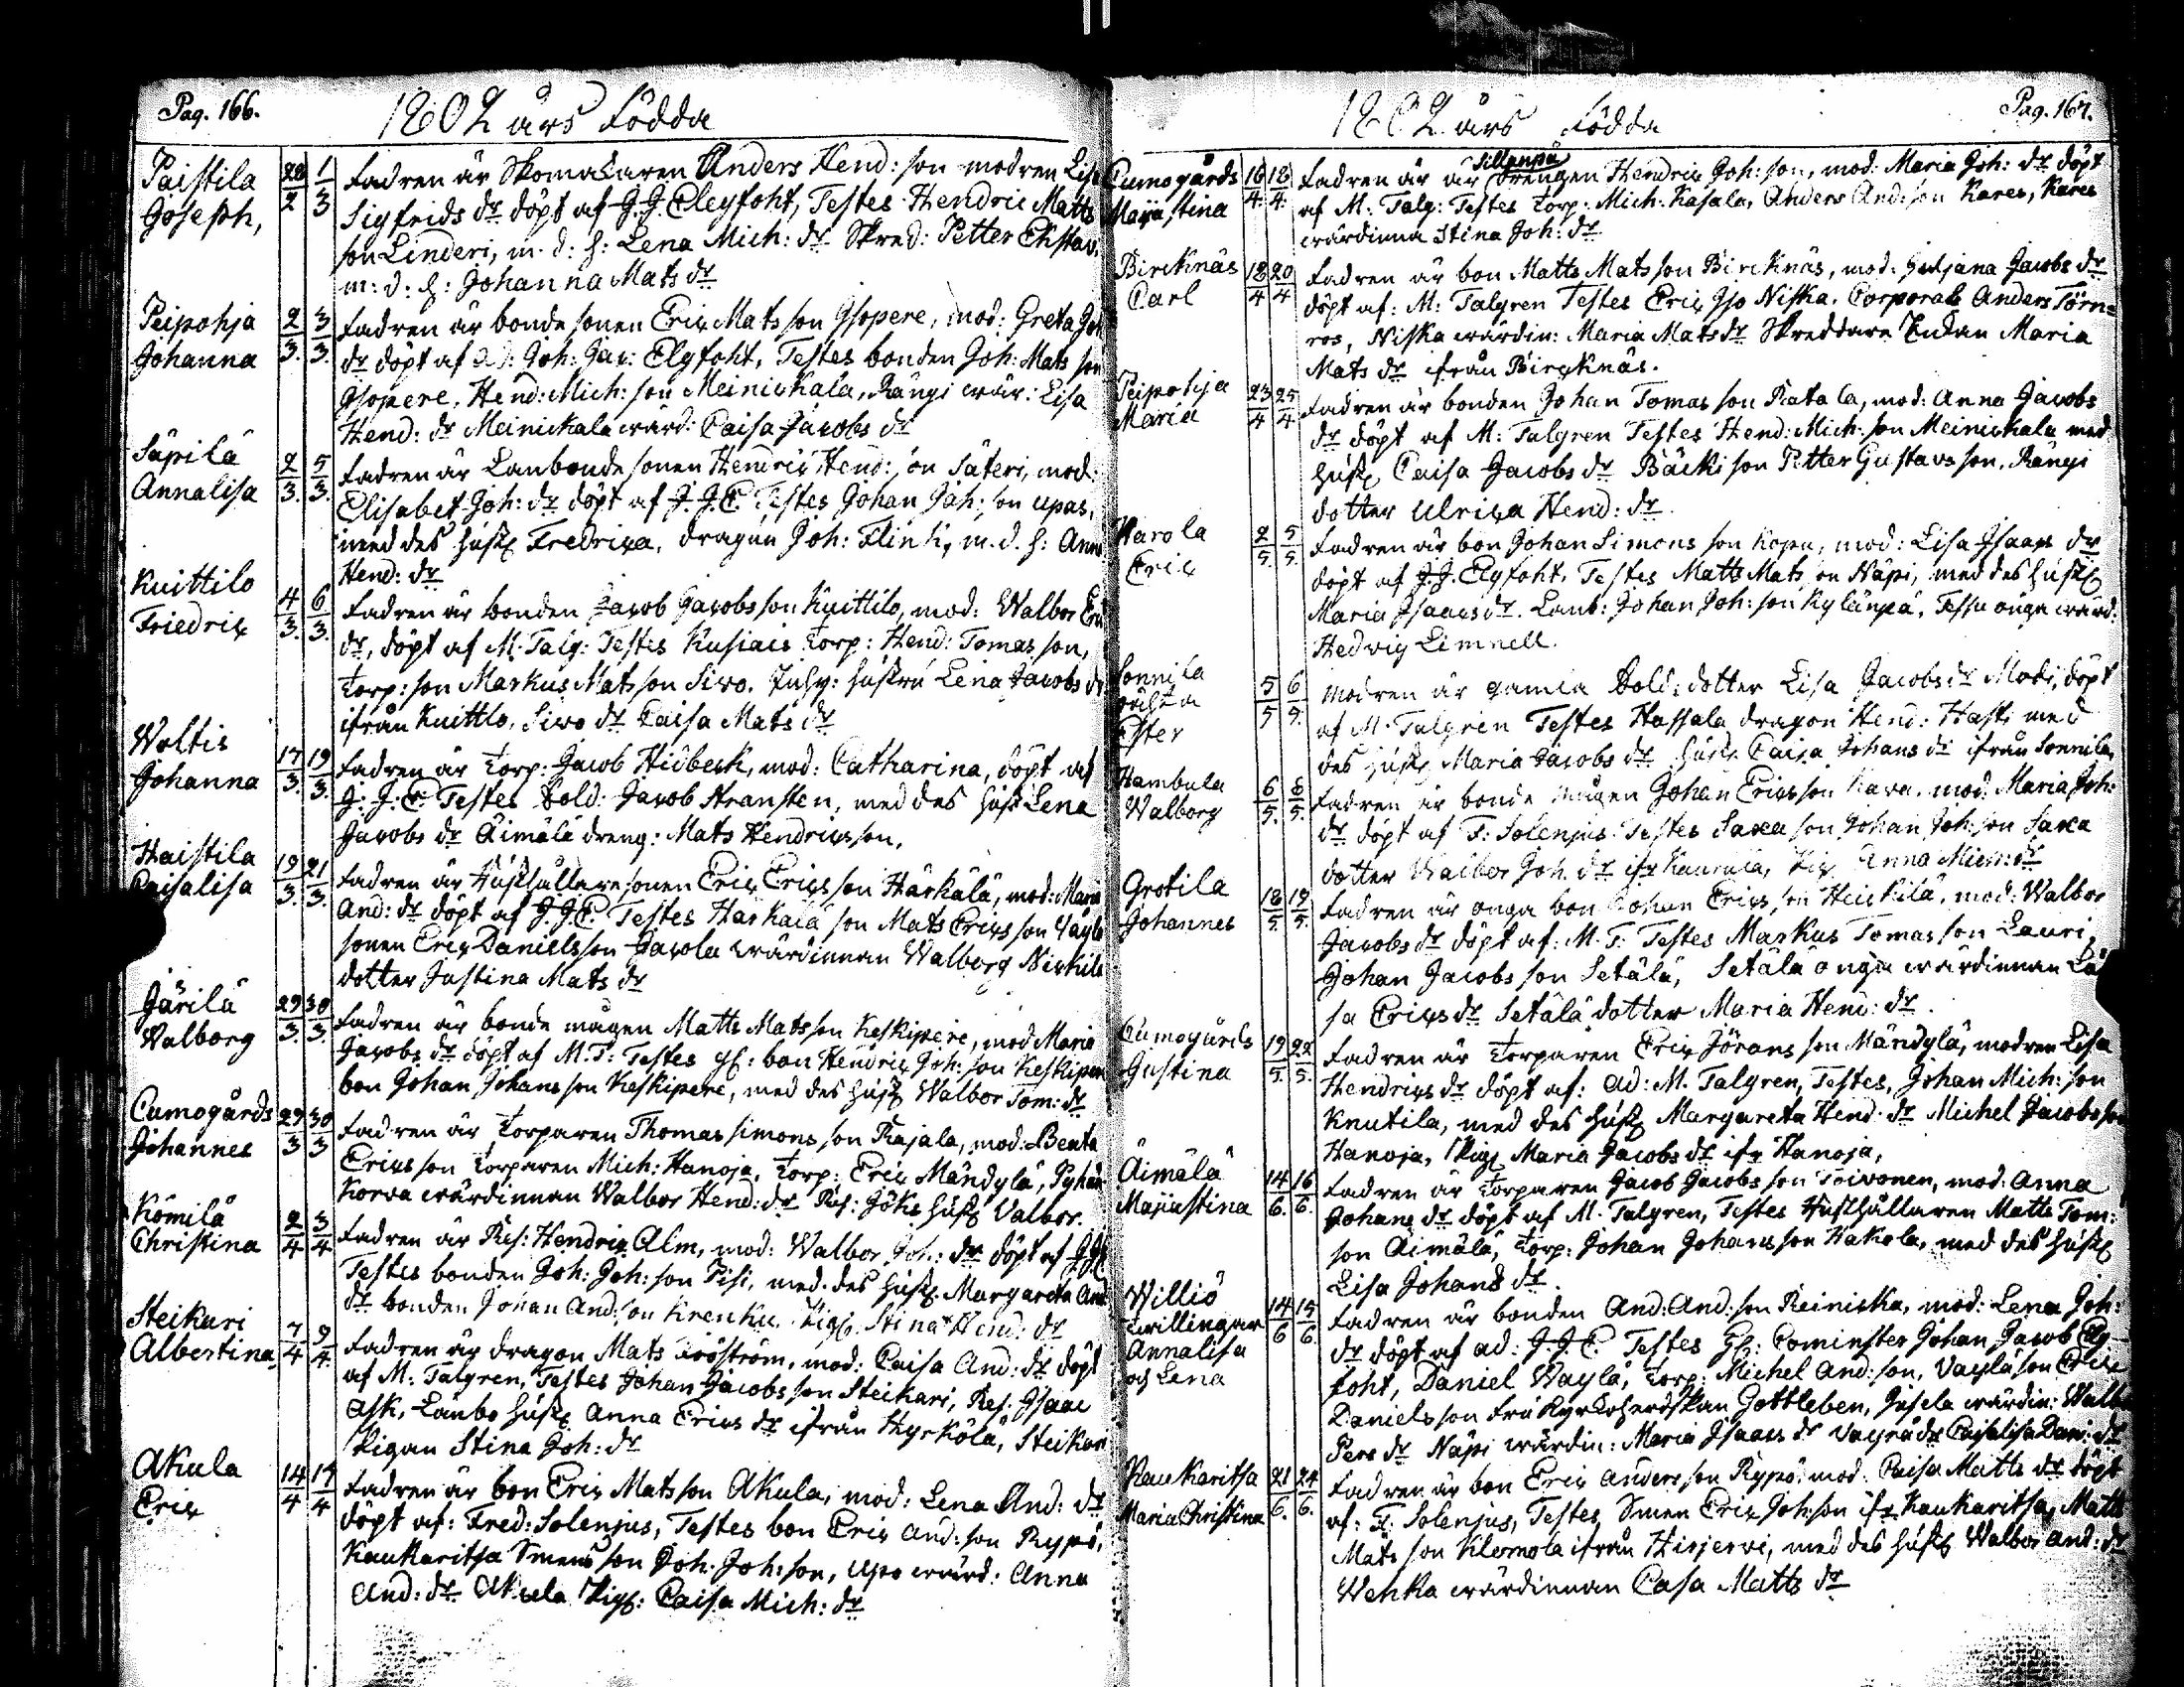 Pag. 166.
1802 års Födda
Paistila
Joseph,
28/2 1/3
Fadren är Skomakaren Anders Hend: son modren Lisa
Sigfrids dr döpt af J. J. Elgfoht, Testes Hendric Matts
son Linderi, m. d: h: Lena Mich: dr Skred: Petter Ekstav.
m: d: h: Johanna Mats dr
Peipohja
Johanna
2/3. 3/3.
Fadren är bonde sonen Eric Mats son Isopere, mod: Greta Joh
dr döpt af Joh: Jac: Elgfoht, Testes bonden Joh: Mats son
Isopere, Hend: Mich: son Meinickala, Rängi wär: Lisa
Hend: dr Meinickala wärd: Caisa Jacobs dr
Säpilä
Annalisa
2/3. 5/3.
Fadren är Lanbonde sonen Hendric Hend: son Säteri, mod:
Elisabet Joh: dr döpt af J. J. E. Testes Johan Joh: son upas,
med des hust Fredrica, dragun Joh: Flink, m. d. h: Anna
Hend: dr
Kuittilo
Friedric
4/3. 6/3.
Fadren är bonden Jacob Jacobs son Kuittilo, mod: Walbor Eri
dr, döpt af M. Talg: Testes Kusiais Torp: Hend: Tomas son,
Torp: son Markus Mats son Siwo. hustru Lena Jacobs dr
ifrån Kuittlo, Siwo dr Caisa Mats dr
Woltis
Johanna
17/3. 19/3.
Fadren är Torp: Jacob Hidbeck, mod: Catharina, döpt af
J. J. E. Testes Sold: Jacob Kransten, med des hust Lena
Jacobs dr Äimälä dreng: Mats Hendricsson,
Haistila
Caisalisa
19/3. 21/3.
Fadren är Hushållare sonen Eric Erics son Härkälä, mod: Maria
And: dr döpt af J. J. E. Testes Härkälä son Mats Erics son Väylä
sonen Eric Daniels son Jacola wärdinnan Walborg Nickila
dotter Justina Mats dr
Järilä
Walborg
29/3. 30/3.
Fadren är bonde mågen Matts Mats son Keskipere, mod Maria
Jacobs dr döpt af M. T: Testes gl: bon Hendric Joh: son Keskipere
bon Johan Johans son Keskipere, med des hust Walbor Tom: dr
Cumogårds
Johannes
29/3 30/3
Fadren är Torparen Thomas Simons son Rajala, mod: Beata
Erics son Torparen Mich: Hanoja, Torp: Eric Mändylä, Pyhän
Korva wärdinnan Walbor Hend: dr Res: Jöks hust Valbor.
Kömilä
Christina
2/4 3/4
Fadren är Res: Hendric Alm, mod: Walbor Joh: dr döpt af J. J. E.
Testes bonden Joh: Joh: son Pisi, med des hust Margareta And
dr bonden Johan And: son Krenku. Pigs. Stina Hend: dr
Steikari
Albertina,
7/4 9/4.
Fadren är dragon Mats Siöström, mod: Caisa And: dr döpt
af M. Talgren, Testes Johan Jacobs son Steikari, Res. Isaac
Ask, Länbo hust Anna Erics dr ifrån Hyrköla, Steikari
Pigan Stina Joh: dr
Akula
Eric
14/4 19/4
Fadren är bon Eric Mats son Akula, mod: Lena And: dr
döpt af: Fred: Solenjus, Testes bon Eric And: son Rypö,
Kaukaritsa Smens son Joh: Joh: son, upo wärd: Anna
And: dr Akula Pig: Caisa Mich: dr
Pag. 167.
1802 års Födda
Cumogårds
Maijastina
16/4. 18/4.
Sillanpä
Fadren är är Drengen Hendric Joh: son, mod: Maria Joh: dr döpt
af M: Talg: Testes Torp: Mich: Kasala, Anders And: son Kares, Kares
wärdinna Stina Joh: dr
Bircknäs
Carl
18/4 20/4
Fadren är bon Matts Mats son Bircknäs, mod: Juljana Jacobs dr
döpt af: M: Talgren Testes Eric Iso Niska. Corporals Anders Törn=
ros, Niska wärdin: Maria Mats dr Skreddare Enkan Maria
Mats dr ifrån Bircknäs.
Peipohja
Maria
23/4 25/4
Fadren är bonden Johan Tomas son Ratala, mod: Anna Jacobs
dr döpt af M: Talgren Testes Hend: Mich: son Meinickala med
hust Caisa Jacobs dr Bäcki son Petter Gustavs son, Rängi
dotter Ulrica Hend: dr.
Harola
Eric
2/5. 5/5.
Fadren är bon Johan Simons son Kopu, mod: Lisa Isaacs dr
döpt af J. J. Elgfoht, Testes Matts Mats son Näpi, med des hust
Maria Isaacs dr. Lanb: Johan Joh: son Kylänpä, Tessu onga wärd:
Hedvig Limnell.
Sonnila
oächta
Ester
5/5 6/5.
Modren är gamla Sold: dotter Lisa Jacobs dr Modi, döpt
af M. Talgren Testes Hassala dragon Hend: Hast med
des hust Maria Jacobs dr hust Caisa Johans dr ifrån Sonnila,
Hambula
Walborg
6/5. 8/5.
Fadren är bonde mågen Johan Erics son Kara, mod: Maria Joh:
dr döpt af F: Solenjus Testes Saxa son Johan Joh: son Saxa
dotter Walbor Joh. dr ifr Kaurula, Pig Anna Mich: dr
Grotila
Johannes
18/5. 19/5.
Fadren är onga bon Johan Erics son Heickilä, mod: Walbor
Jacobs dr döpt af: M. T: Testes Markus Tomas son Lauri,
Johan Jacobs son Setälä, Setälä onga wärdinnan Lä
sa Erics dr Setälä dotter Maria Hend: dr.
Cumogårds
Justina
19/5. 22/5.
Fadren är Torparen Eric Jörans son Mändylä, modren Lisa
Hendrics dr döpt af: ad: M. Talgren, Testes, Johan Mich: son
Knutila, med des hust Margareta Hend: dr Michel Jacobs son
Hanoja, Pig Maria Jacobs dr ifr Hanoja,
Äimälä
Majiastina
14/6. 16/6.
Fadren är Torparen Jacob Jacobs son Toivonen, mod: Anna
Johans dr döpt af M. Talgren, Testes Hushållaren Matts Tom:
son Äimälä, Torp: Johan Johans son Hakola, med des hust
Lisa Johans dr.
Williö
twillingar
Annalisa
och Lena
14/6 15/6.
Fadren är bonden And: And: son Reiniska, mod: Lena Joh:
dr döpt af ad: J. J. E. Testes Hr: Cominster Johan Jacob Elg-
foht, Daniel Wäylä, Torp: Michel And: son, Väylä son Eric
Daniels son Fru Kyrkoherdskan Gottleben, Jusela wärdin: Walb
Pers dr Näpi wärdin: Maria Isaacs dr Caisalisa Dani: dr
Kaukaritsa
Maria Christina
21/6. 24/6.
Fadren är bon Eric Anders son Rypö, mod: Caisa Matts dr döpt
af: F. Solenjus, Testes Smen Eric Joh: son ifr Kaukaritsa, Matts
Mats son Klemola ifrån Hirjerwi, med des hust Walbor And: dr
Wenka wärdinnan Casa Matts dr